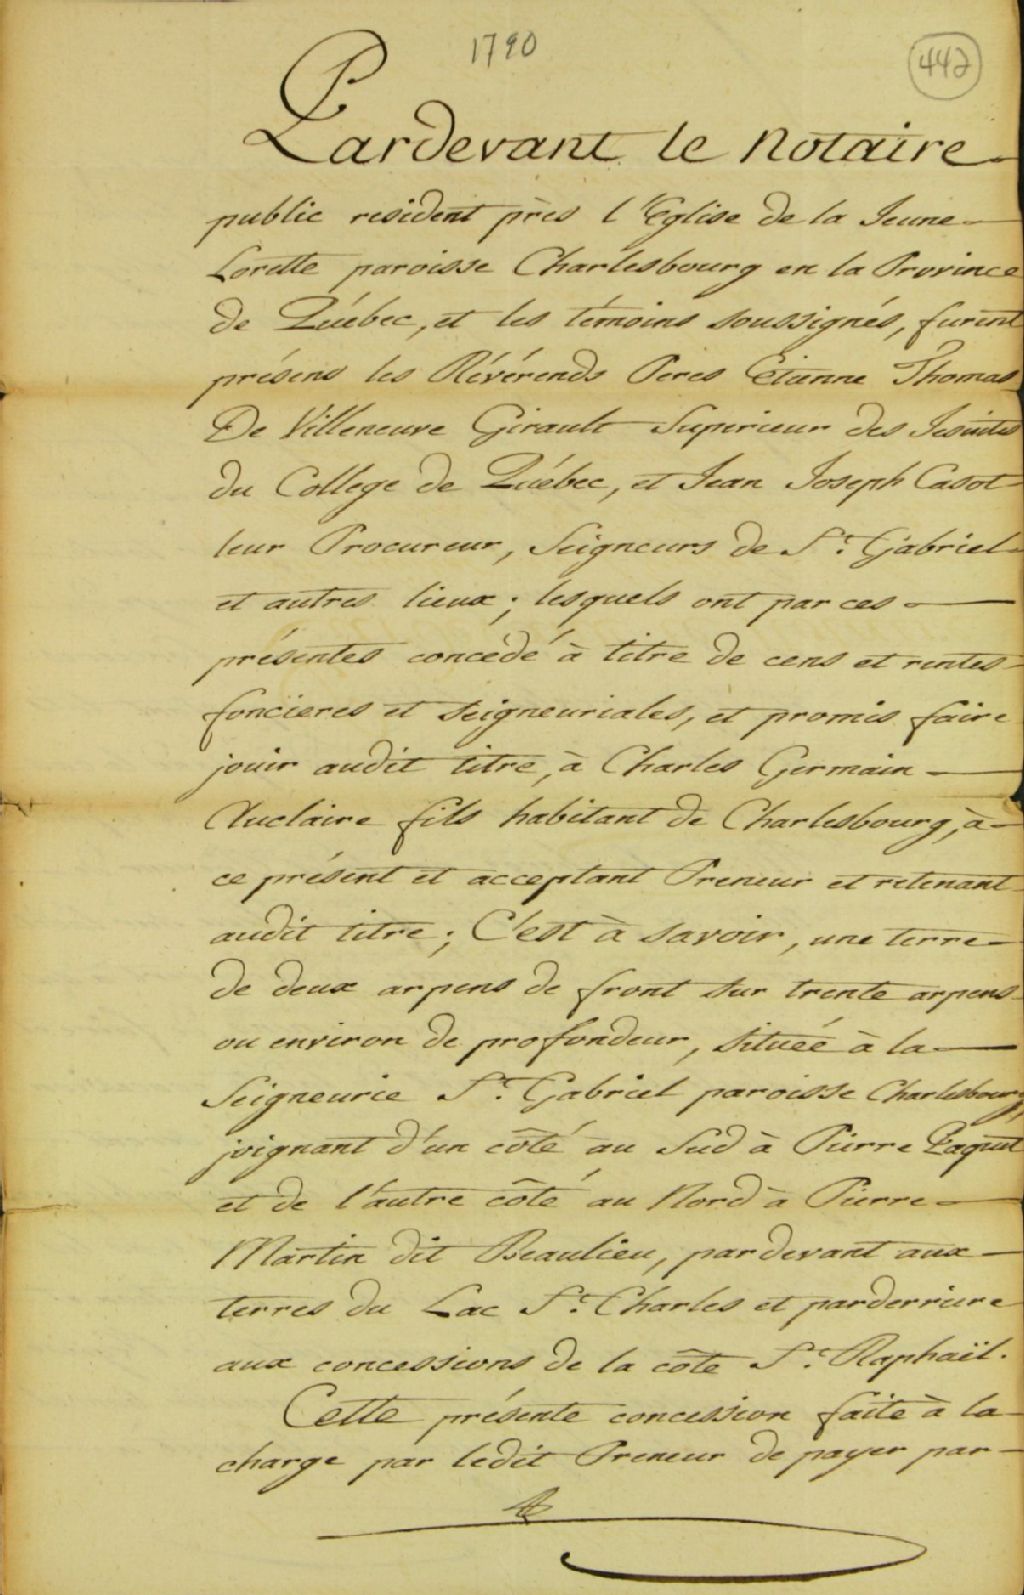 1790
442
Pardevant le Notaire
public resident près l'Eglise de la Jeune
Lorette paroisse Charlesbourg en la Province
de Québec, et les témoins soussignés, furent
présens les Révérends Peres Etienne Thomas
De Villeneuve Girault Superieur des Jesuites
du College de Québec, et Jean Joseph Casot
leur Procureur, Seigneurs de St. Gabriel
et autres lieux; lesquels ont par ces
présentes concédé à titre de cens et rentes
foncieres et seigneuriales, et promis faire
jouir audit titre, à Charles Germain
Auclaire fils habitant de Charlesbourg, à
ce présent et acceptant Preneur et retenant
audit titre; C'est à savoir, une terre
de deux arpens de front sur trente arpens
ou environ de profondeur, située à la
Seigneurie St. Gabriel paroisse Charlesbourg,
joignant d'un côté au Sud à Pierre Paquet
et de l'autre côté au Nord à Pierre
Martin dit Beaulieu, pardevant aux
terres du Lac St. Charles et parderriere
aux concessions de la côte St. Raphaël.
Cette présente concession faite à la
charge par ledit Preneur de payer par